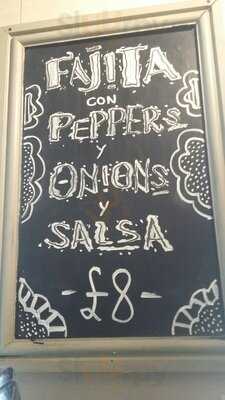 FAJITA
CON
PEPPERS
Y
ONIONS
Y
SALSA
-£8-